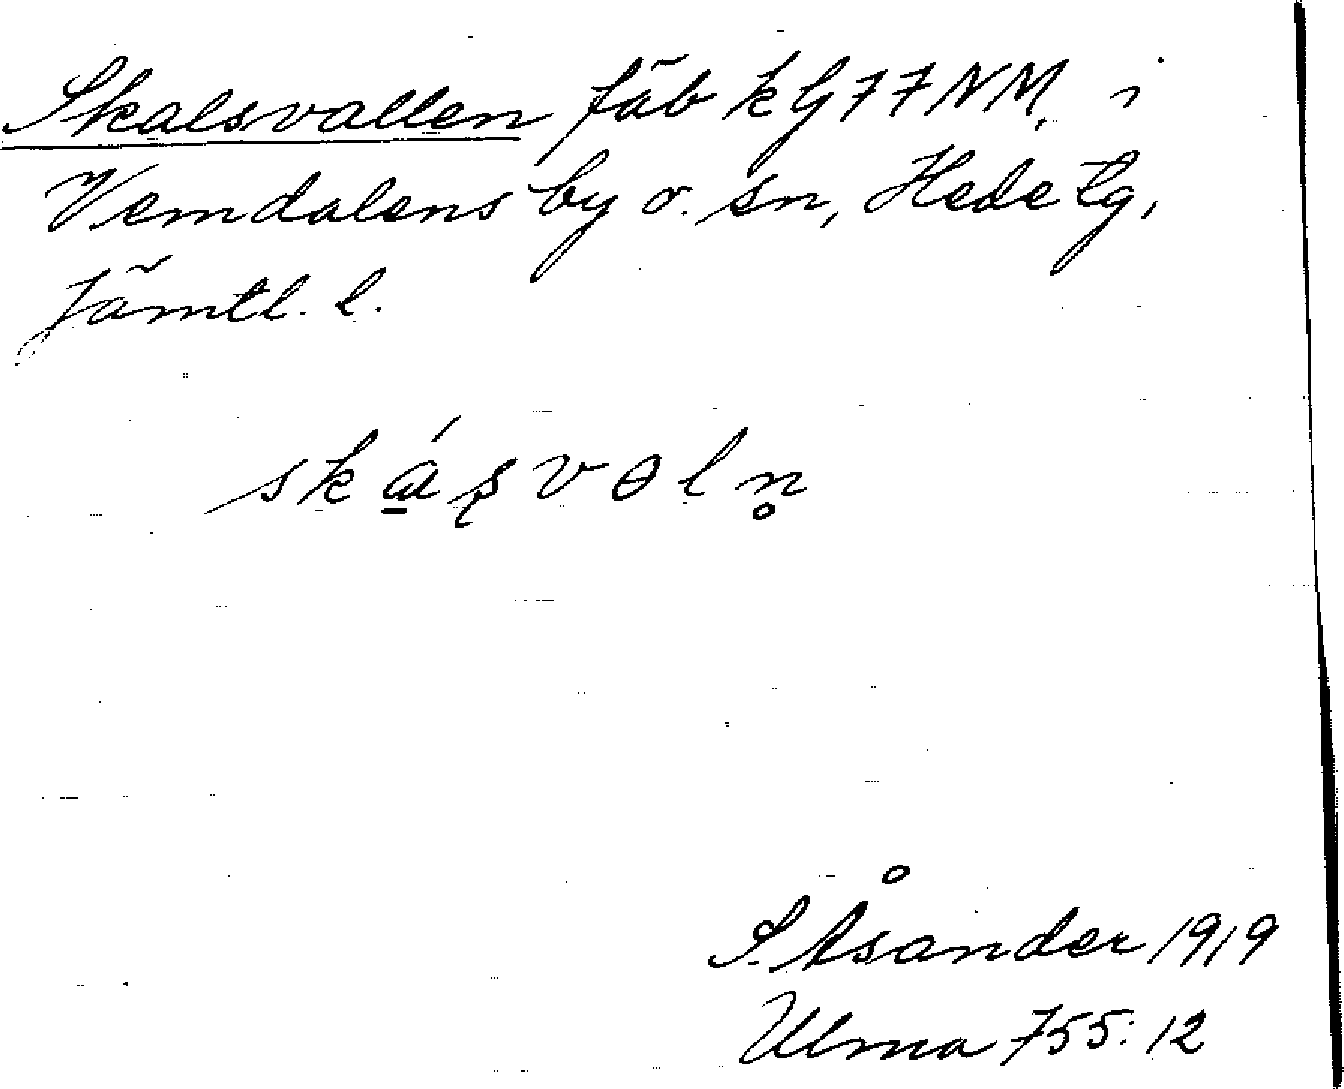 Skalsvallen fäb kG77NM, i
Vemdalens by o. sn, Hede tg,
Jämtl. l.
skа́ʂvɵln̥
S. Åsander 1919
Ulma 755:12